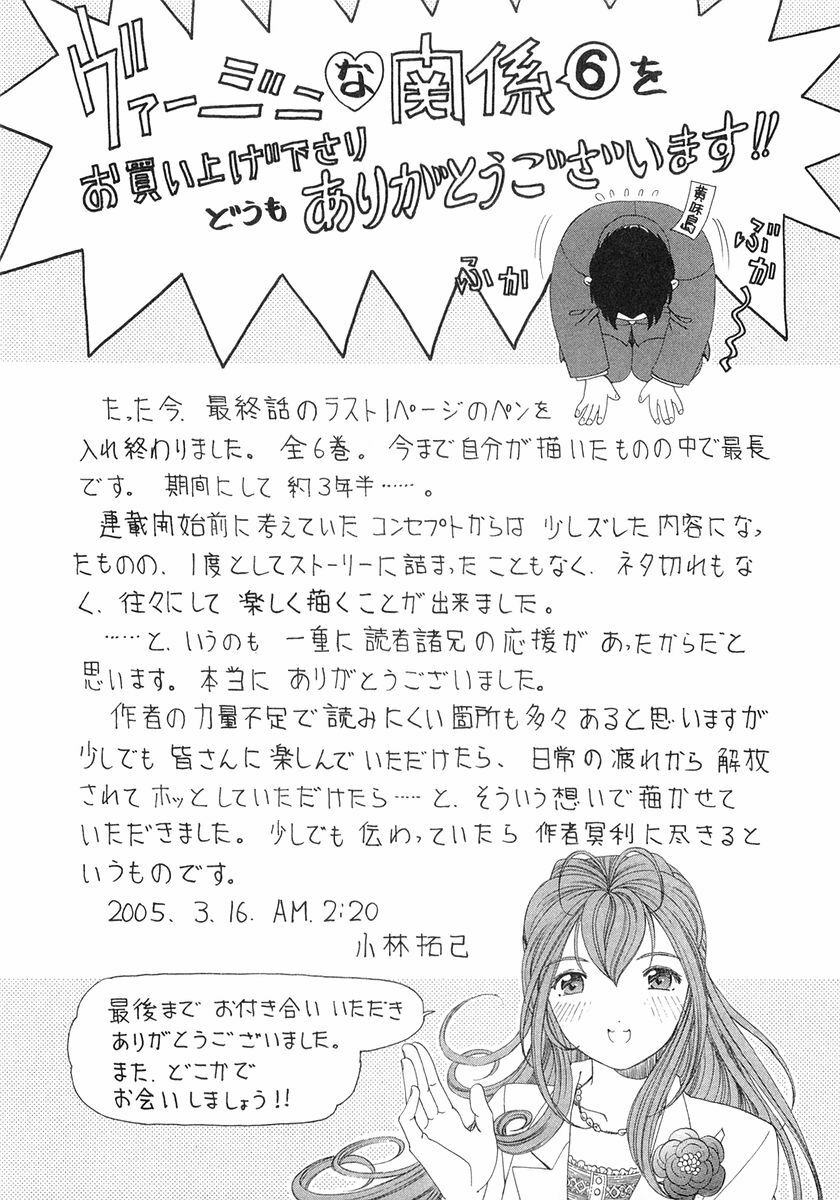 ヴァージニな関係⑥を
お買い上げ下さり
どうもありがとうございます!!
黄味島
ぶか
ふか
たった今、最終話のラスト1ページのペンを
入れ終わりました。全6巻。今まで自分が描いたものの中で最長
です。期間にして約3年半……。
連載開始前に考えていたコンセプトからは少しズした内容になっ
たものの、1度としてストーリーに詰まったこともなく、ネタ切れもな
く、往々にして楽しく描くことが出来ました。
……と、いうのも一重に読者諸兄の応援があったからだと
思います。本当にありがとうございました。
作者の力量不足で読みにくい箇所も多々あると思いますが
少しでも皆さんに楽しんでいただけたら、日常の疲れから解放
されてホッとしていただけたら……と、そういう想いで描かせて
いただきました。少しでも伝わっていたら作者冥利に尽きると
いうものです。
2005. 3.16. AM.2:20
小林拓己
最後までお付き合いいただき
ありがとうございました。
また、どこかで
お会いしましょう!!